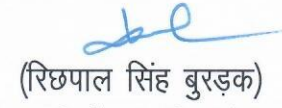 (रिछपाल सिंह बुरड़क)